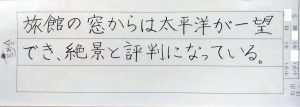 旅館の窓からは太平洋が一望
でき、絶景と評判になっている。